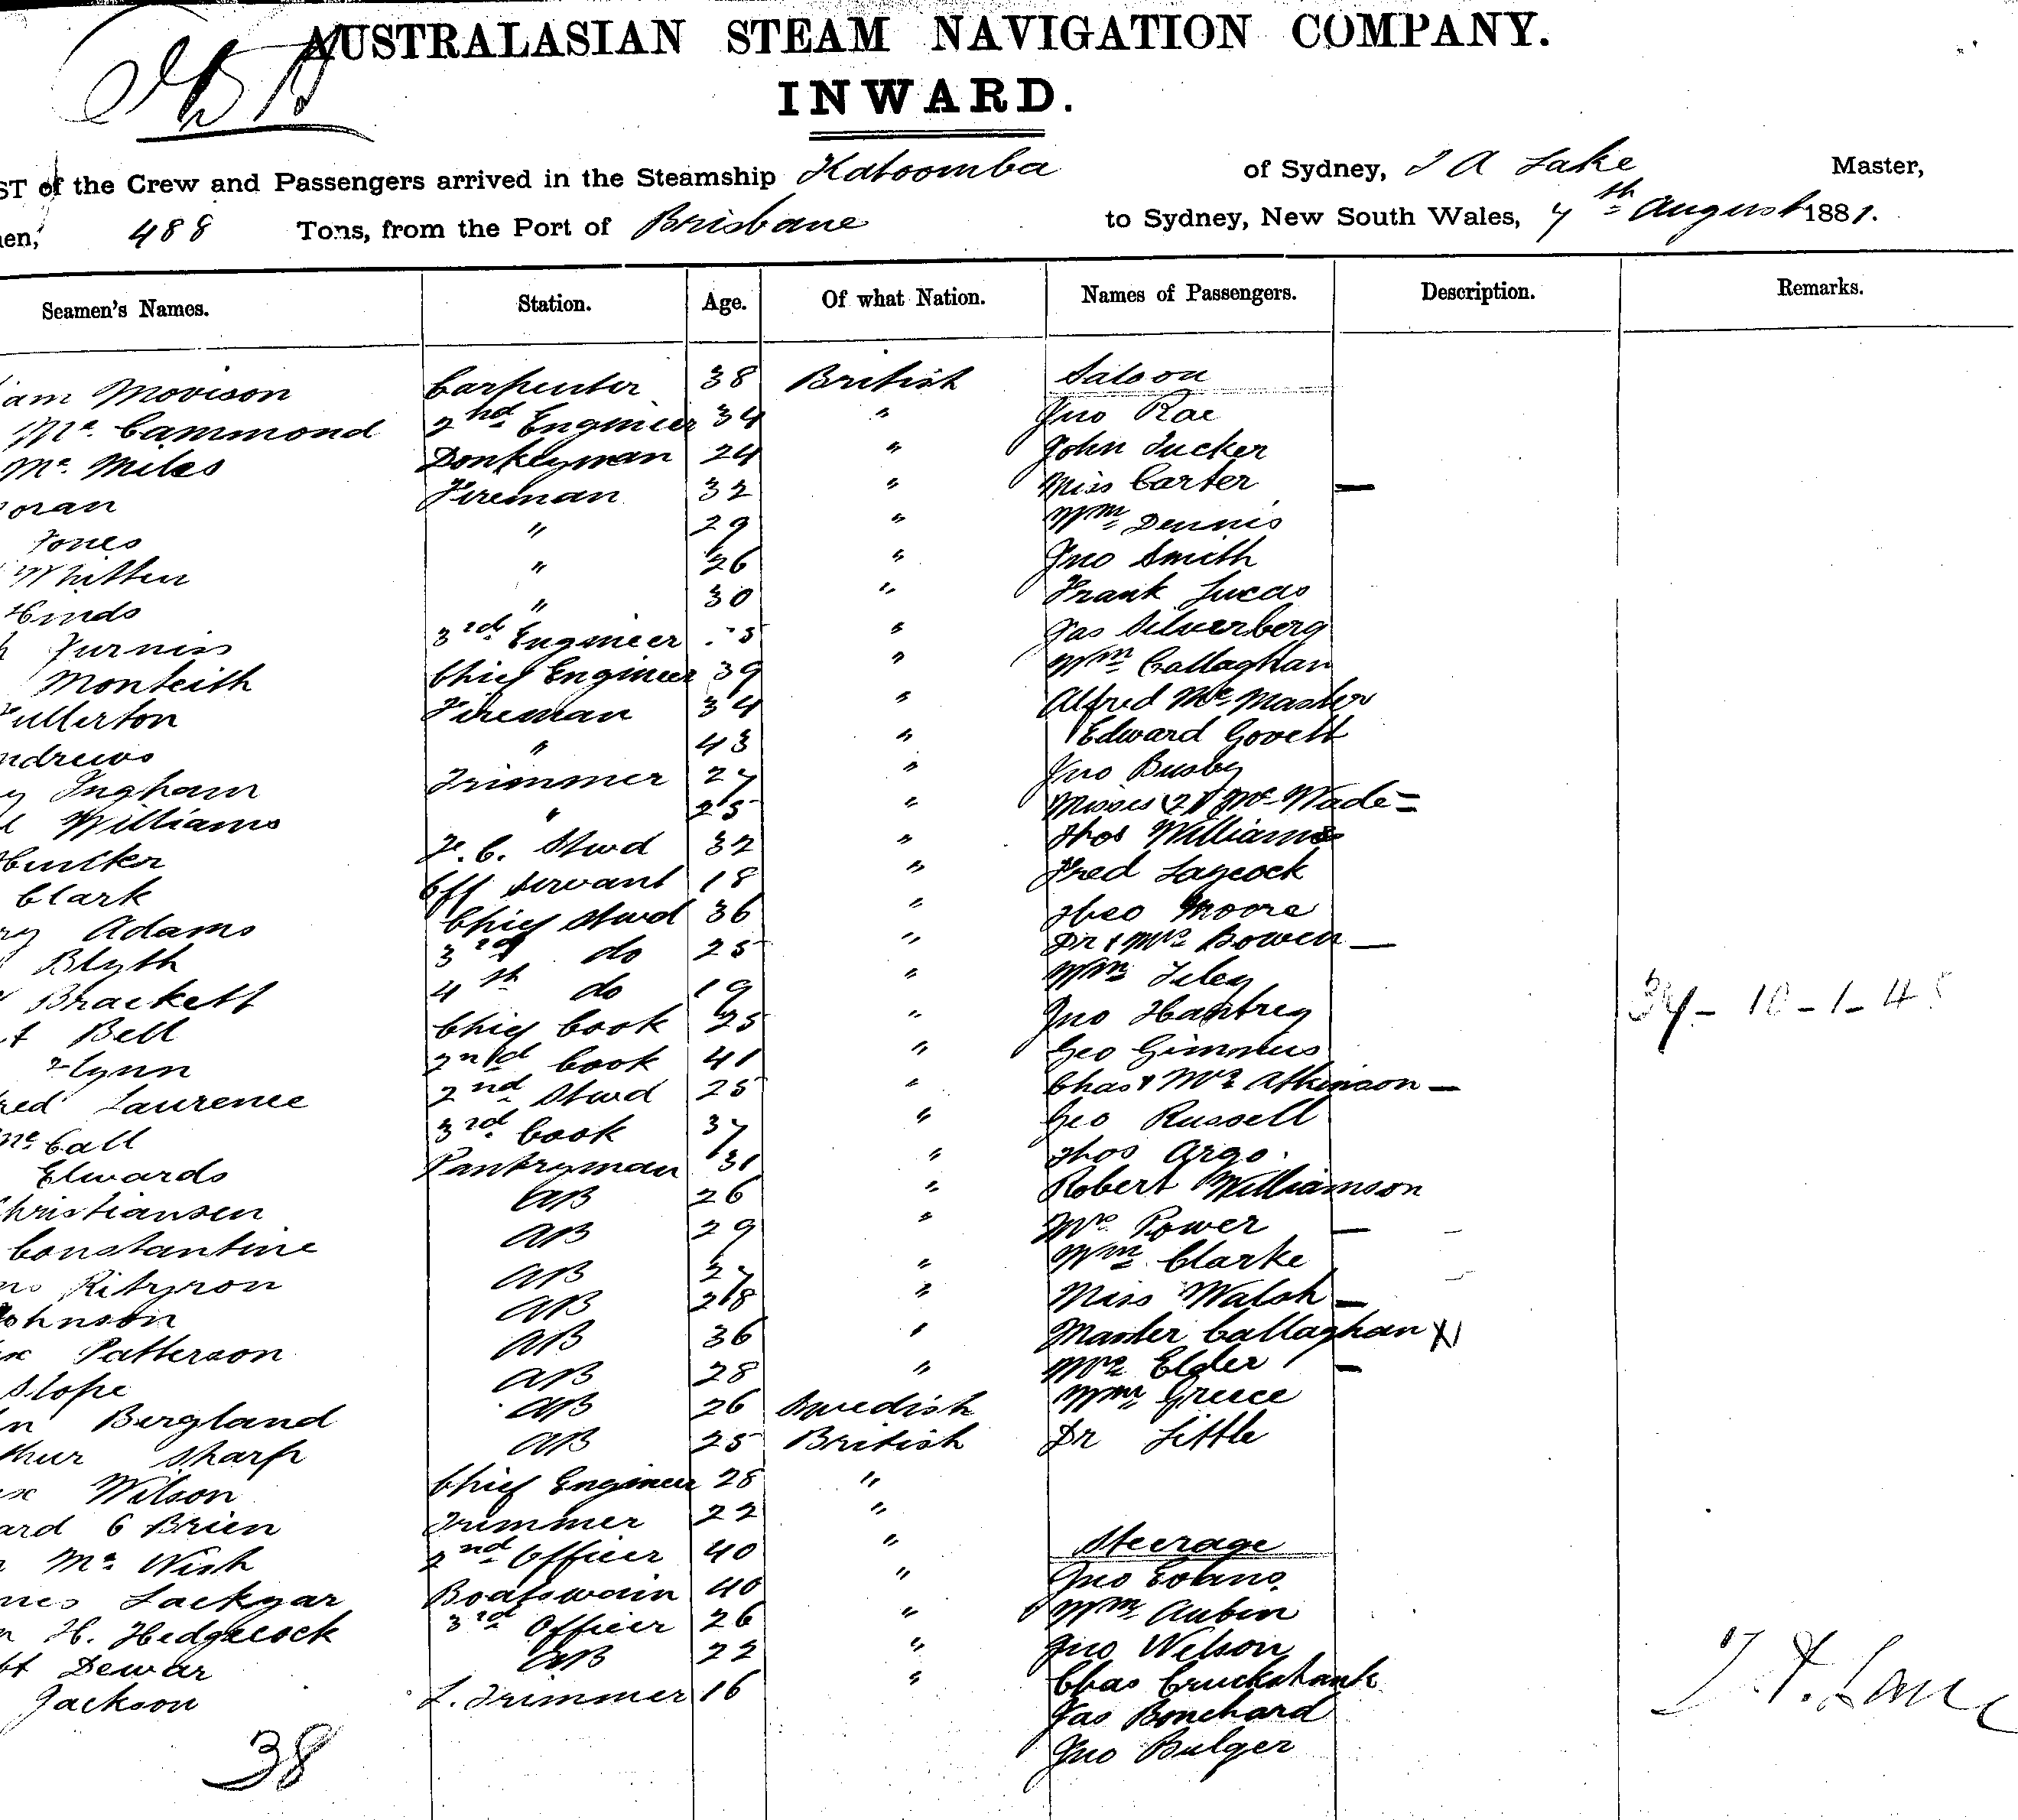 AUSTRALASIAN STEAM NAVIGATION COMPANY.
INWARD.
ST of the Crew and Passengers arrived in the Steamship Katoomba of Sydney, J A Lake Master,
men, 488 Tons, from the Port of Brisbane to Sydney, New South Wales, 7th August 1881.
Seamen's Names. Station. Age. Of what Nation. Names of Passengers. Description. Remarks.
iam Morison Carpenter 38 British Saloon
Mc Cammond 2nd Engineer 34 " Jno Rae
Mc Miles Donkeyman 24 " John Tucker
oran Fireman 32 " Miss Carter —
Jones " 29 " Wm Dennis
Whitten " 26 " Jno Smith
Hinds " 30 " Frank Lucas
Furniss 3rd Engineer " Jas Silverberg
Monteith Chief Engineer 39 " Wm Callaghan
Fullerton Fireman 34 " Alfred Mc Master
ndrews " 43 " Edward Govett
y Ingham Trimmer 27 " Jno Busby
l Williams " 25 " Misses (2) Mc Wade =
F. C. Stwd 32 " Thos Williams
Clark Off Servant 18 " Fred Laycock
ry Adams Chief Stwd 36 " Theo Moore
Blyth 3rd do 25 " Dr & Mrs Bowen —
Brackett 4th do 19 " Wm
t Bell Chief Cook 25 " Jno
Flynn 2nd Cook 41 " Geo Gimmus
red Laurence 2nd Stwd 25 " Chas & Mrs Atkinson —
Mc Call 3rd Cook 37 " Geo Russell
Edwards Pantryman 31 " Thos Argo.
Christiansen AB 26 " Robert Williamson
Constantine AB 29 " Mrs Power —
AB 27 " Wm Clarke
Johnson AB 28 " Miss Walsh —
Patterson AB 36 " Master Callaghan X1
Slope AB 28 " Mrs Elder —
n Bergland AB 26 Swedish Wm Greece
thur Sharp AB 25 British Dr Little
Wilson Chief Engineer 28 "
ard O Brien Trimmer 22 "
Mc Nish 2nd Officer 40 " Steerage
mes Lackyar Boatswain 40 " Jno Evans.
n H. Hedgecock 3rd Officer 26 " Wm Aubin
bt Dewar AB 22 " Jno Wilson
Jackson L. Trimmer 16 " Chas Cruckshank
Jas Bonchard
Jno Bulger
38